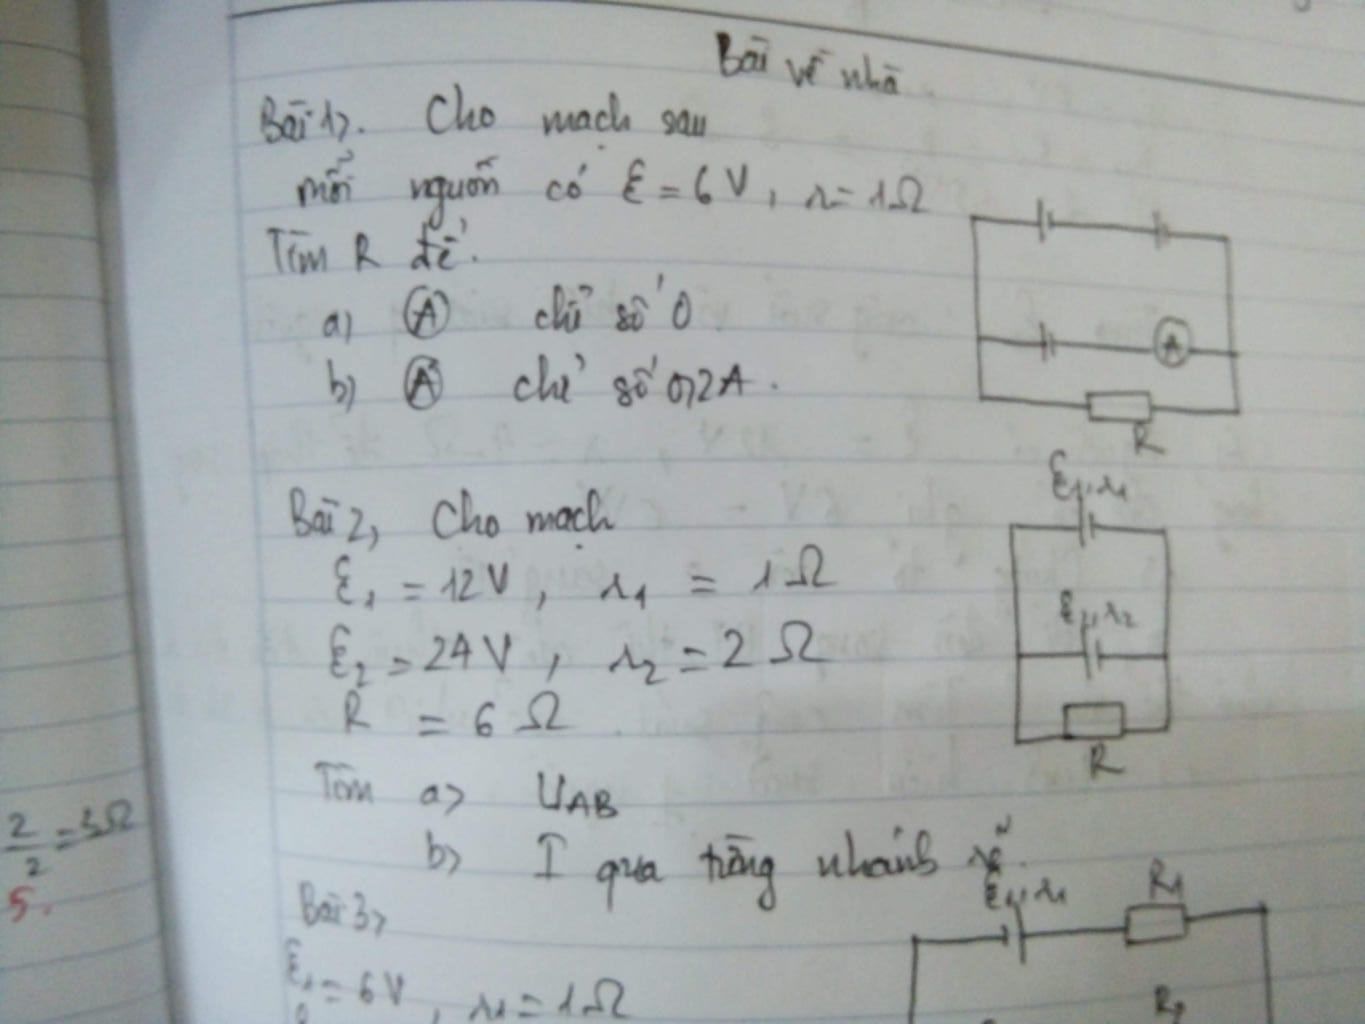 Bài về nhà
Bài 1>. Cho mạch sau
mỗi nguồn có ℰ = 6V, r = 1Ω
Tìm R để.
a) Ⓐ chỉ số 0.
b) Ⓐ chỉ số 0,2A.
A
R
Bài 2, Cho mạch
ℰ₁ = 12V, r₁ = 1Ω
ℰ₂ = 24V, r₂ = 2Ω
R = 6Ω.
Tìm a> U_AB
b> I qua từng nhánh rẽ.
ℰ₁, r₁
ℰ₂, r₂
R
Bài 3>
ℰ₁ = 6V, r₁ = 1Ω
ℰ₁, r₁ R₁
R₂
2/2 = 3Ω
5.